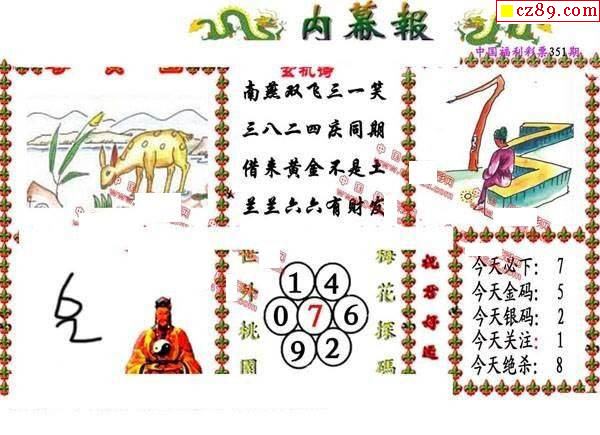 cz89.com
内幕報
中国福利彩票351期
玄机诗
南燕双飞三一笑
三八二四庆同期
借来黄金不是土
兰兰六六有财发
世外桃園
1 4
0 7 6
9 2
梅花探碼
祝君好运
今天必下: 7
今天金码: 5
今天银码: 2
今天关注: 1
今天绝杀: 8